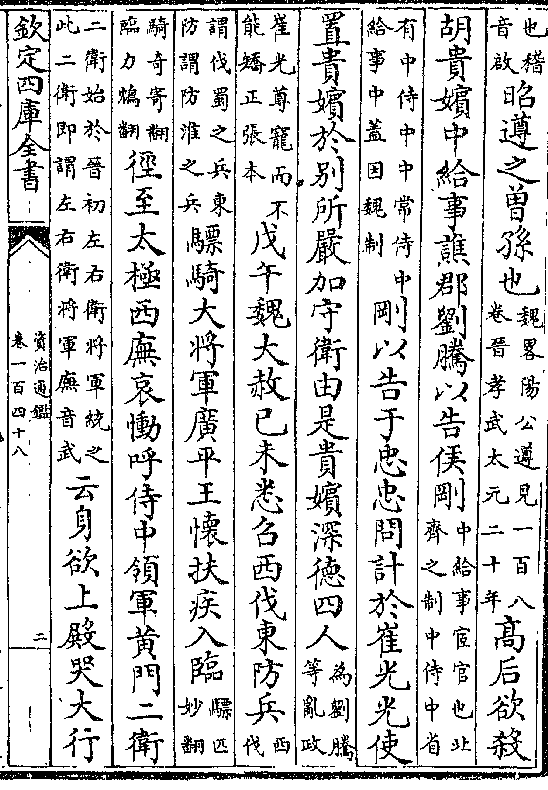 也稽音啟昭遵之曾孫也魏畧陽公遵見一百八卷晉孝武太元二十年高后欲殺
胡貴嬪中給事譙郡劉騰以告侯剛中給事宦官也北齊之制中侍中省
有中侍中中常侍中給事中蓋因魏制剛以告于忠忠問計於崔光光使
置貴嬪於别所嚴加守衛由是貴嬪深德四人為劉騰等亂政
崔光尊寵而不能矯正張本戊午魏大赦己未悉召西伐東防兵西伐
謂伐蜀之兵東防謂防淮之兵驃騎大將軍廣平王懷扶疾入臨驃匹妙翻
騎奇寄翻臨力鴆翻徑至太極西廡哀慟呼侍中領軍黄門二衛
二衛始於晉初左右衛將軍統之此二衛即謂左右衛將軍廡音武云身欲上殿哭大行
欽定四庫全書
資治通鑑
卷一百四十八
二